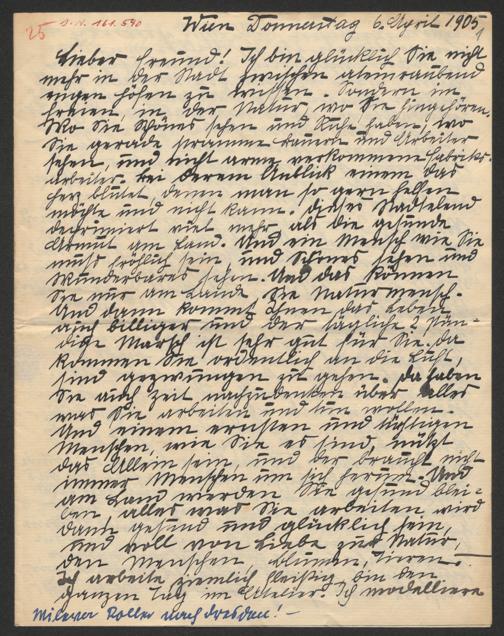 25 I.N. 161.590
Wien Donnerstag 6. April 1905
Lieber Freund! Ich bin glücklich Sie nicht
mehr in der Stadt zwischen atemraubend
engen Höfen zu wissen. Sondern im
Freien, in der Natur, wo Sie hingehören.
Wo Sie Schönes sehen und Ruhe haben, wo
Sie gerade stramme Bauern und Arbeiter
sehen, und nicht arme verkommene Fabriks-
arbeiter. Bei derem Anblick einem das
Herz blutet, denen man so gern helfen
möchte und nicht kann. Dieses Stadtelend
deprimiert viel mehr, als die gesunde
Armut am Land. Und ein Mensch wie Sie
muss fröhlich sein, und Schönes sehen und
Wunderbares sehen. Und das können
Sie nur am Lande, Sie Naturmensch.
Und dann kommt Ihnen das Leben
auch billiger und der tägliche 2 stün-
dige Marsch ist sehr gut für Sie. Da
kommen Sie ordentlich an die Luft,
sind gezwungen zu gehen. Da haben
Sie auch Zeit nachzudenken über alles
was Sie arbeiten und tun wollen.
Und einem ernsten und tüchtigen
Menschen, wie Sie es sind, nützt
das Allein sein, und der braucht nicht
immer Menschen um sich herum. Und
am Land werden Sie gesund blei-
ben, alles was Sie arbeiten wird
dann gesund und glücklich sein,
und voll von Liebe zur Natur,
den Menschen, Blumen, Tieren.
Ich arbeite ziemlich fleißig, bin den
ganzen Tag im Atelier. Ich modelliere
Mileva Roller nach Dresden! –